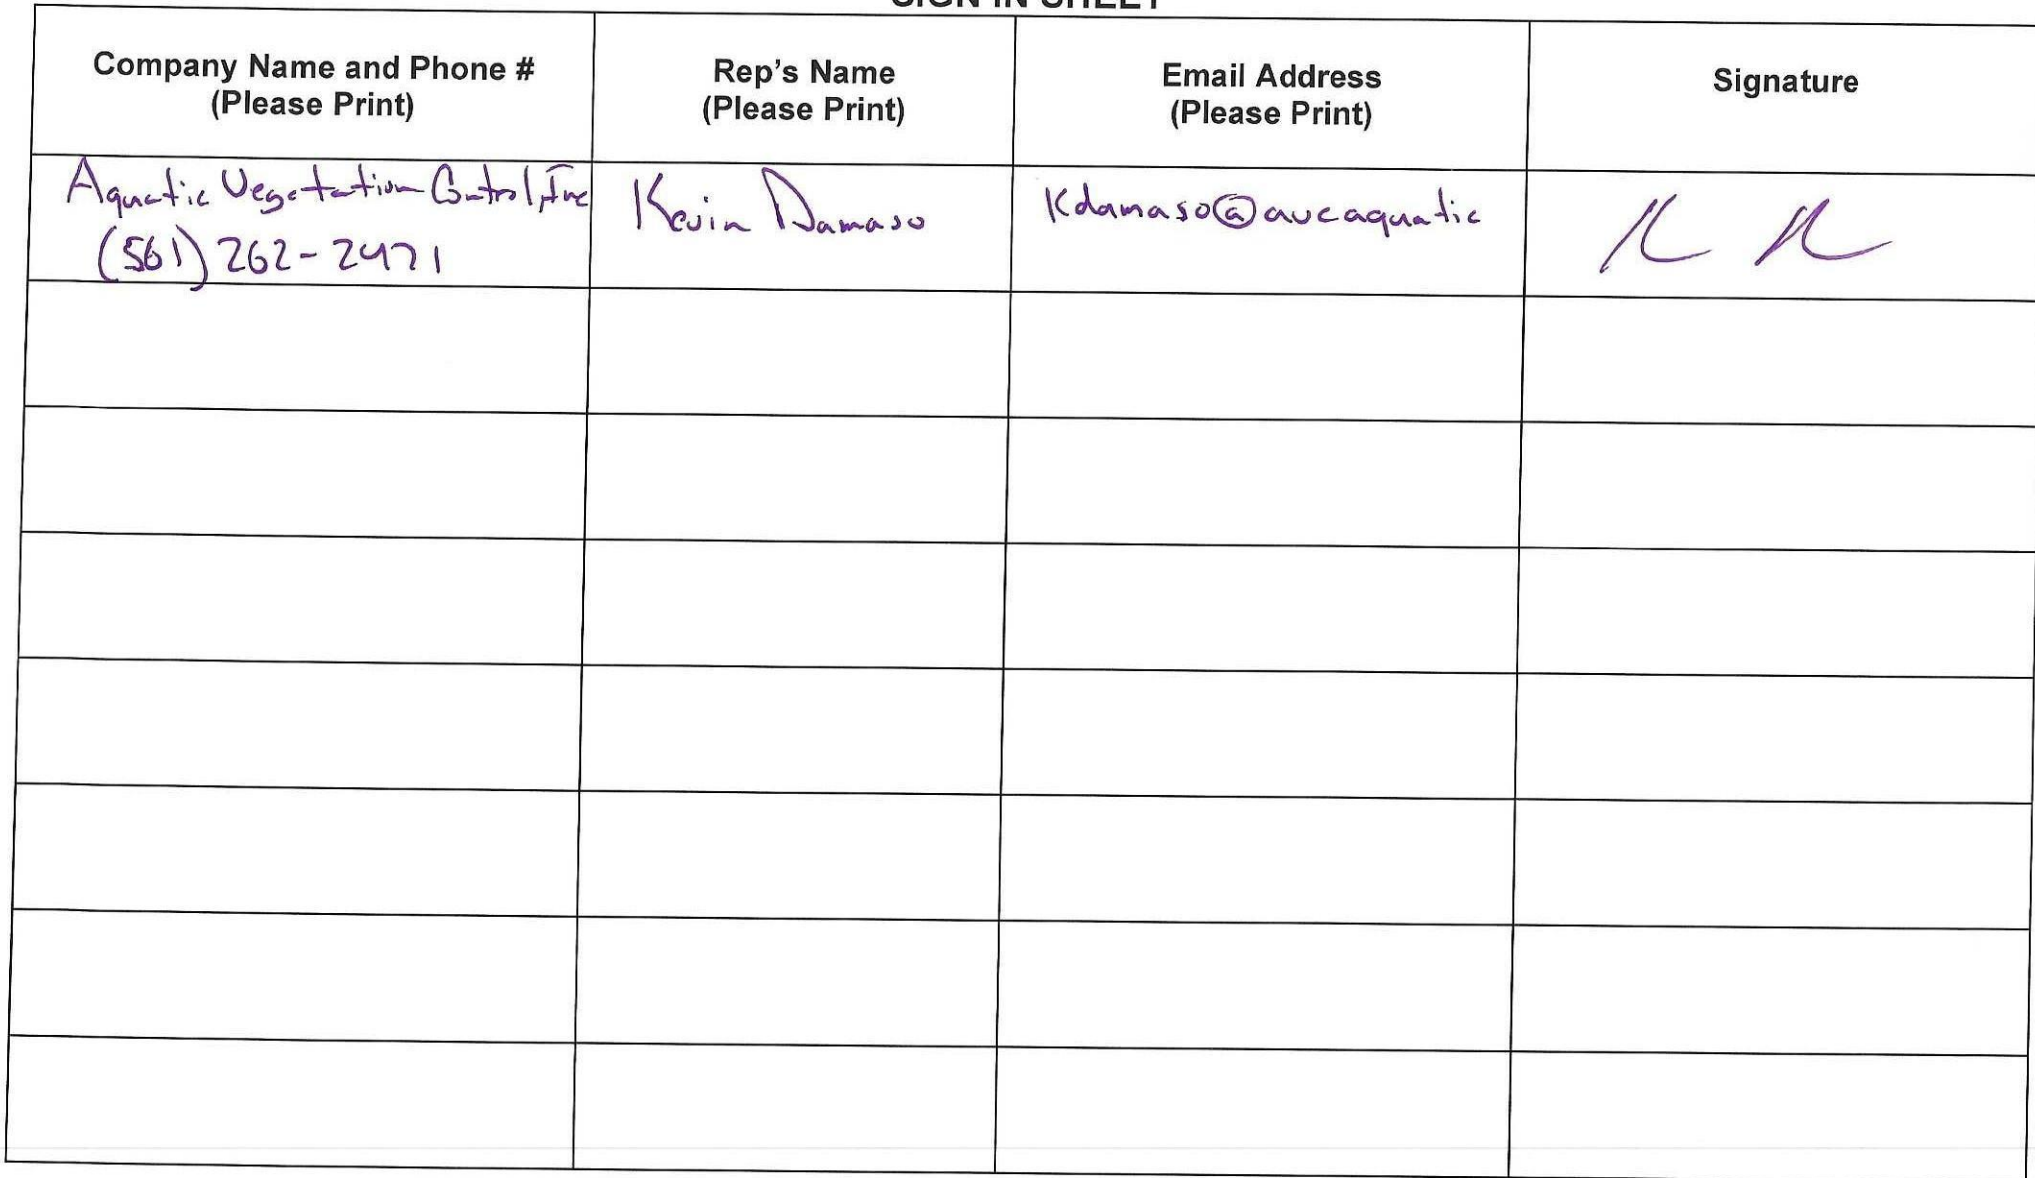 SIGN IN SHEET
Company Name and Phone #
(Please Print)
Rep's Name
(Please Print)
Email Address
(Please Print)
Signature
Aquatic Vegetation Control, Inc
(561) 262-2471
Kevin Damaso
Kdamaso@avcaquatic